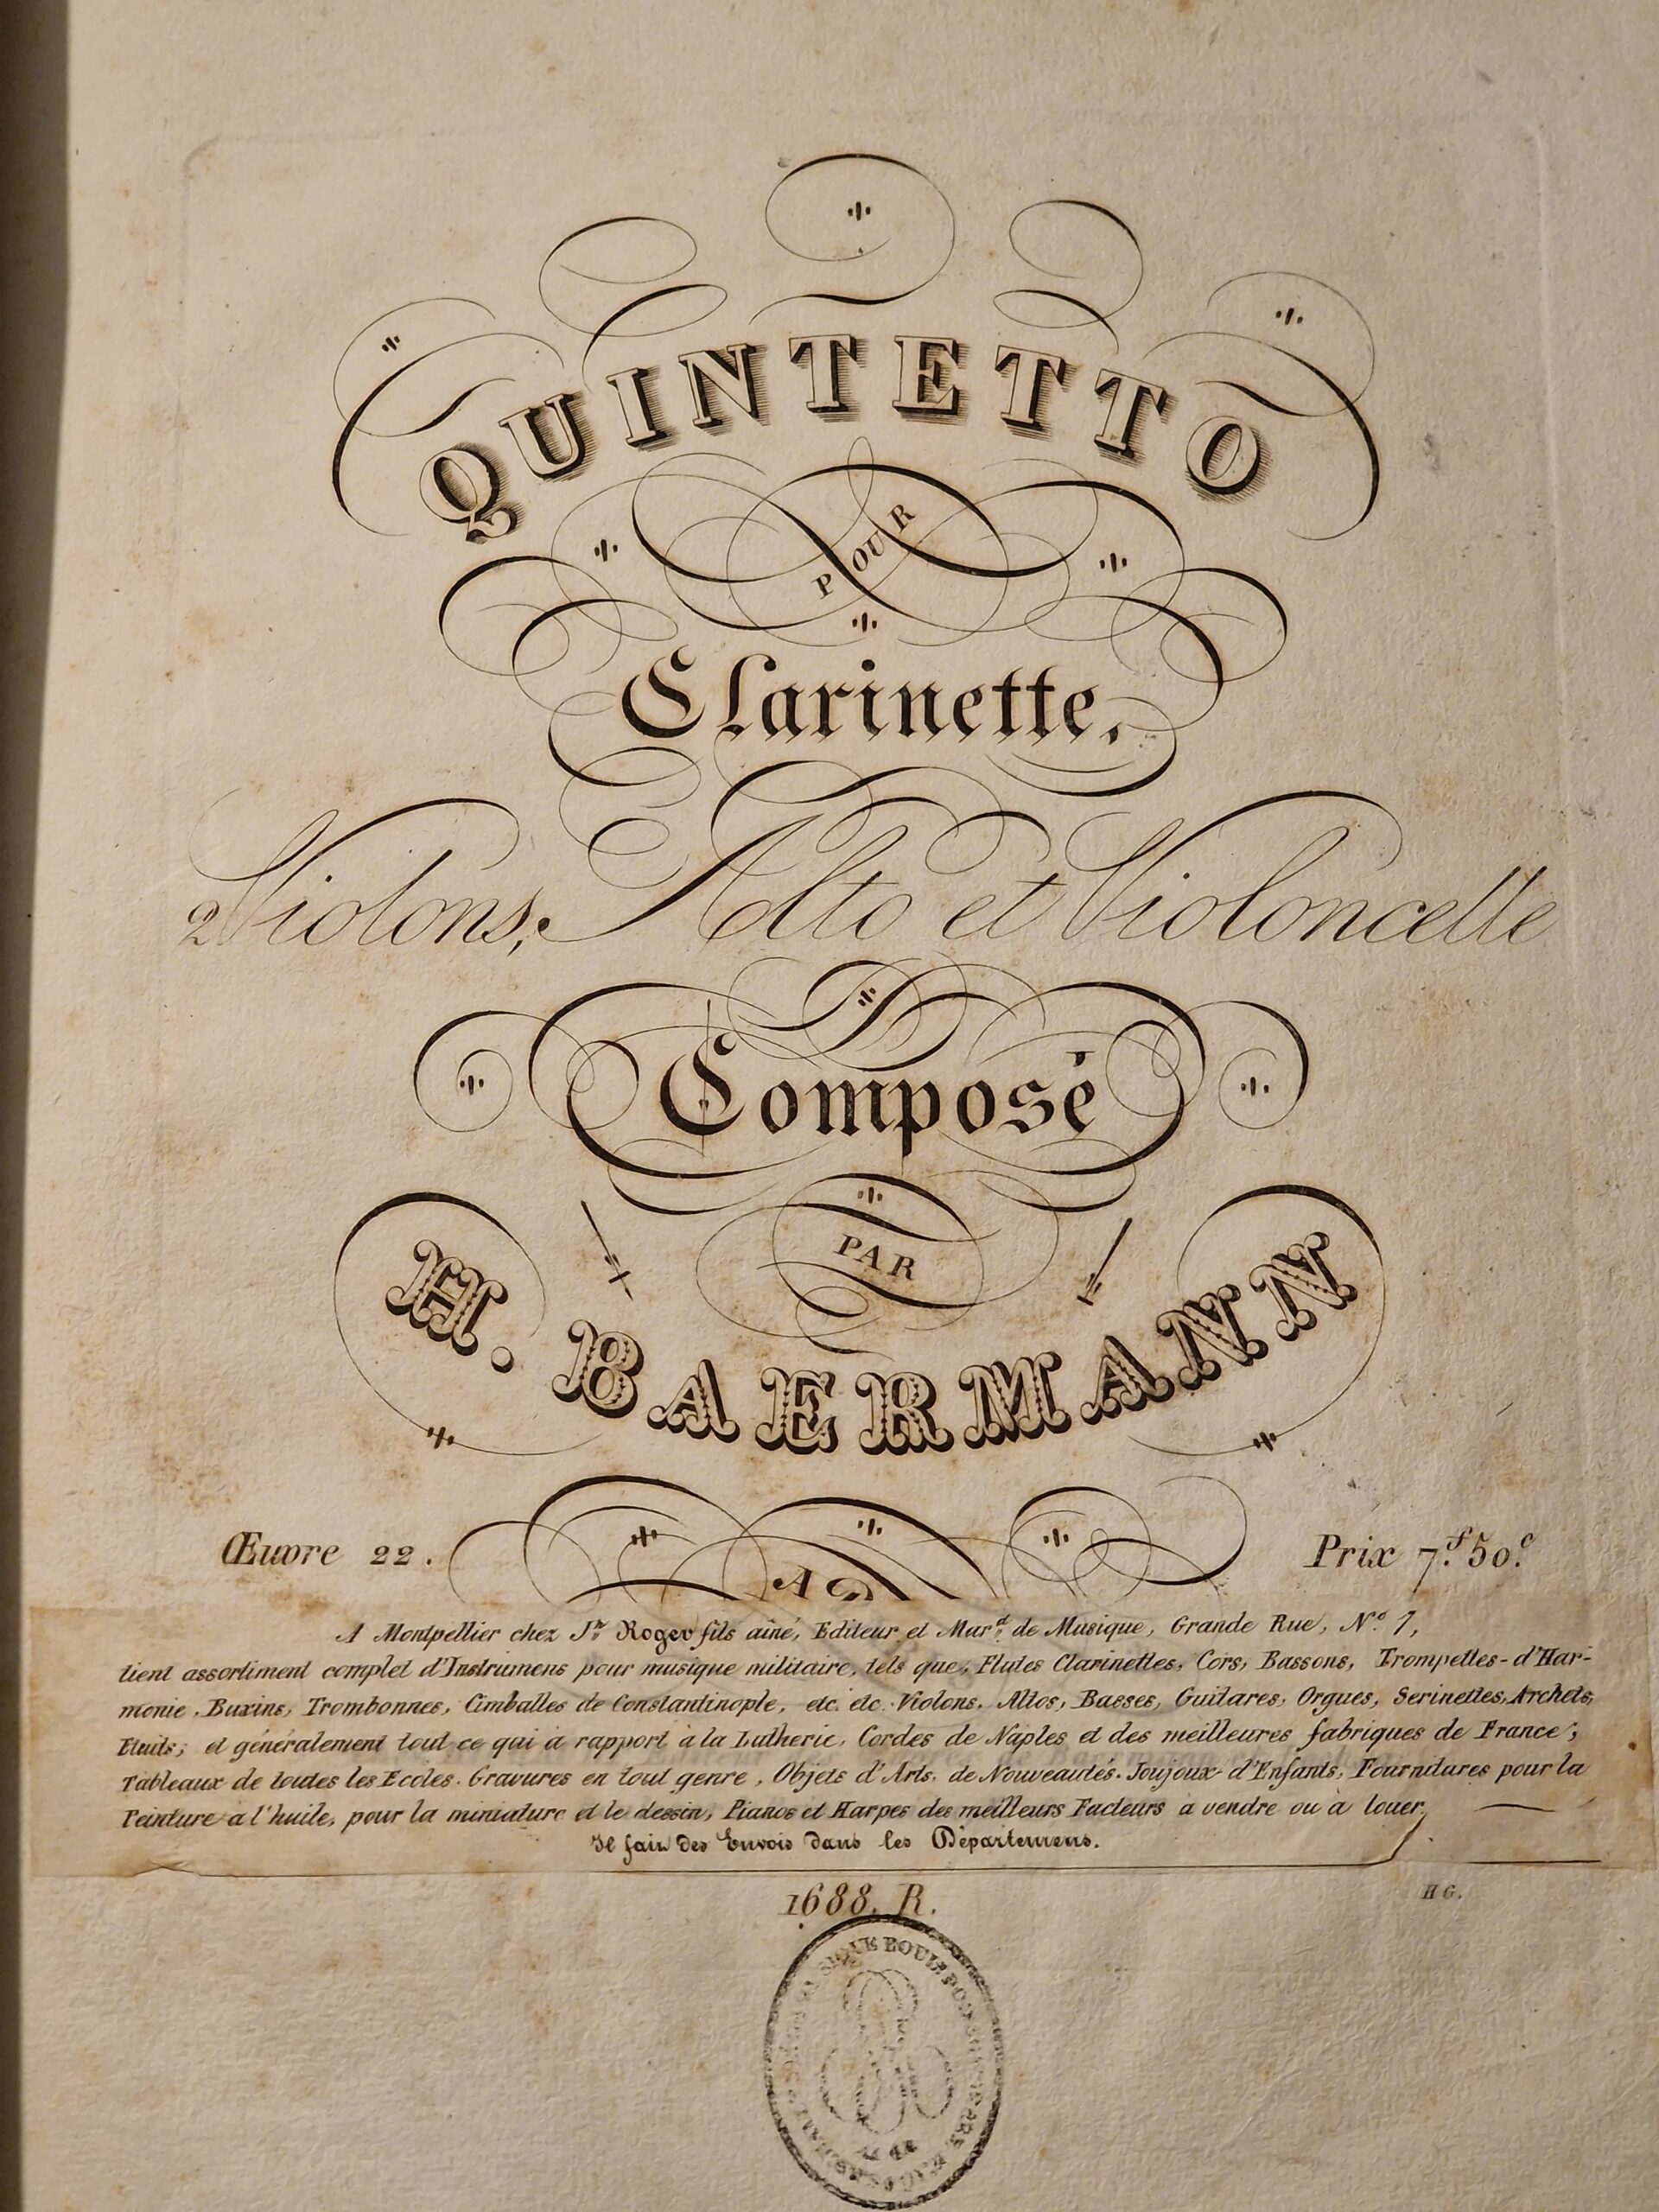 QUINTETTO
POUR
Clarinette,
2 Violons, Alto et Violoncelle
Composé
PAR
H. BAERMANN
Œuvre 22.
Prix 7.f 50.c
A Montpellier chez J.h Roger fils ainé, Editeur et Mar.d de Musique, Grande Rue, N.o 7,
tient assortiment complet d'Instrumens pour musique militaire, tels que, Flutes Clarinettes, Cors, Bassons, Trompettes-d'Har-
monie, Buxins, Trombonnes, Cimballes de Constantinople, etc. etc. Violons, Altos, Basses, Guitares, Orgues, Serinettes, Archets,
Etuits; et généralement tout ce qui a rapport à la Lutherie, Cordes de Naples et des meilleures fabriques de France;
Tableaux de toutes les Ecoles. Gravures en tout genre, Objets d'Arts, de Nouveautés. Joujoux d'Enfants, Fournitures pour la
Peinture à l'huile, pour la miniature et le dessin, Pianos et Harpes des meilleurs Facteurs a vendre ou à louer.
Il fait des Envois dans les Départemens.
1688. R.
HG.